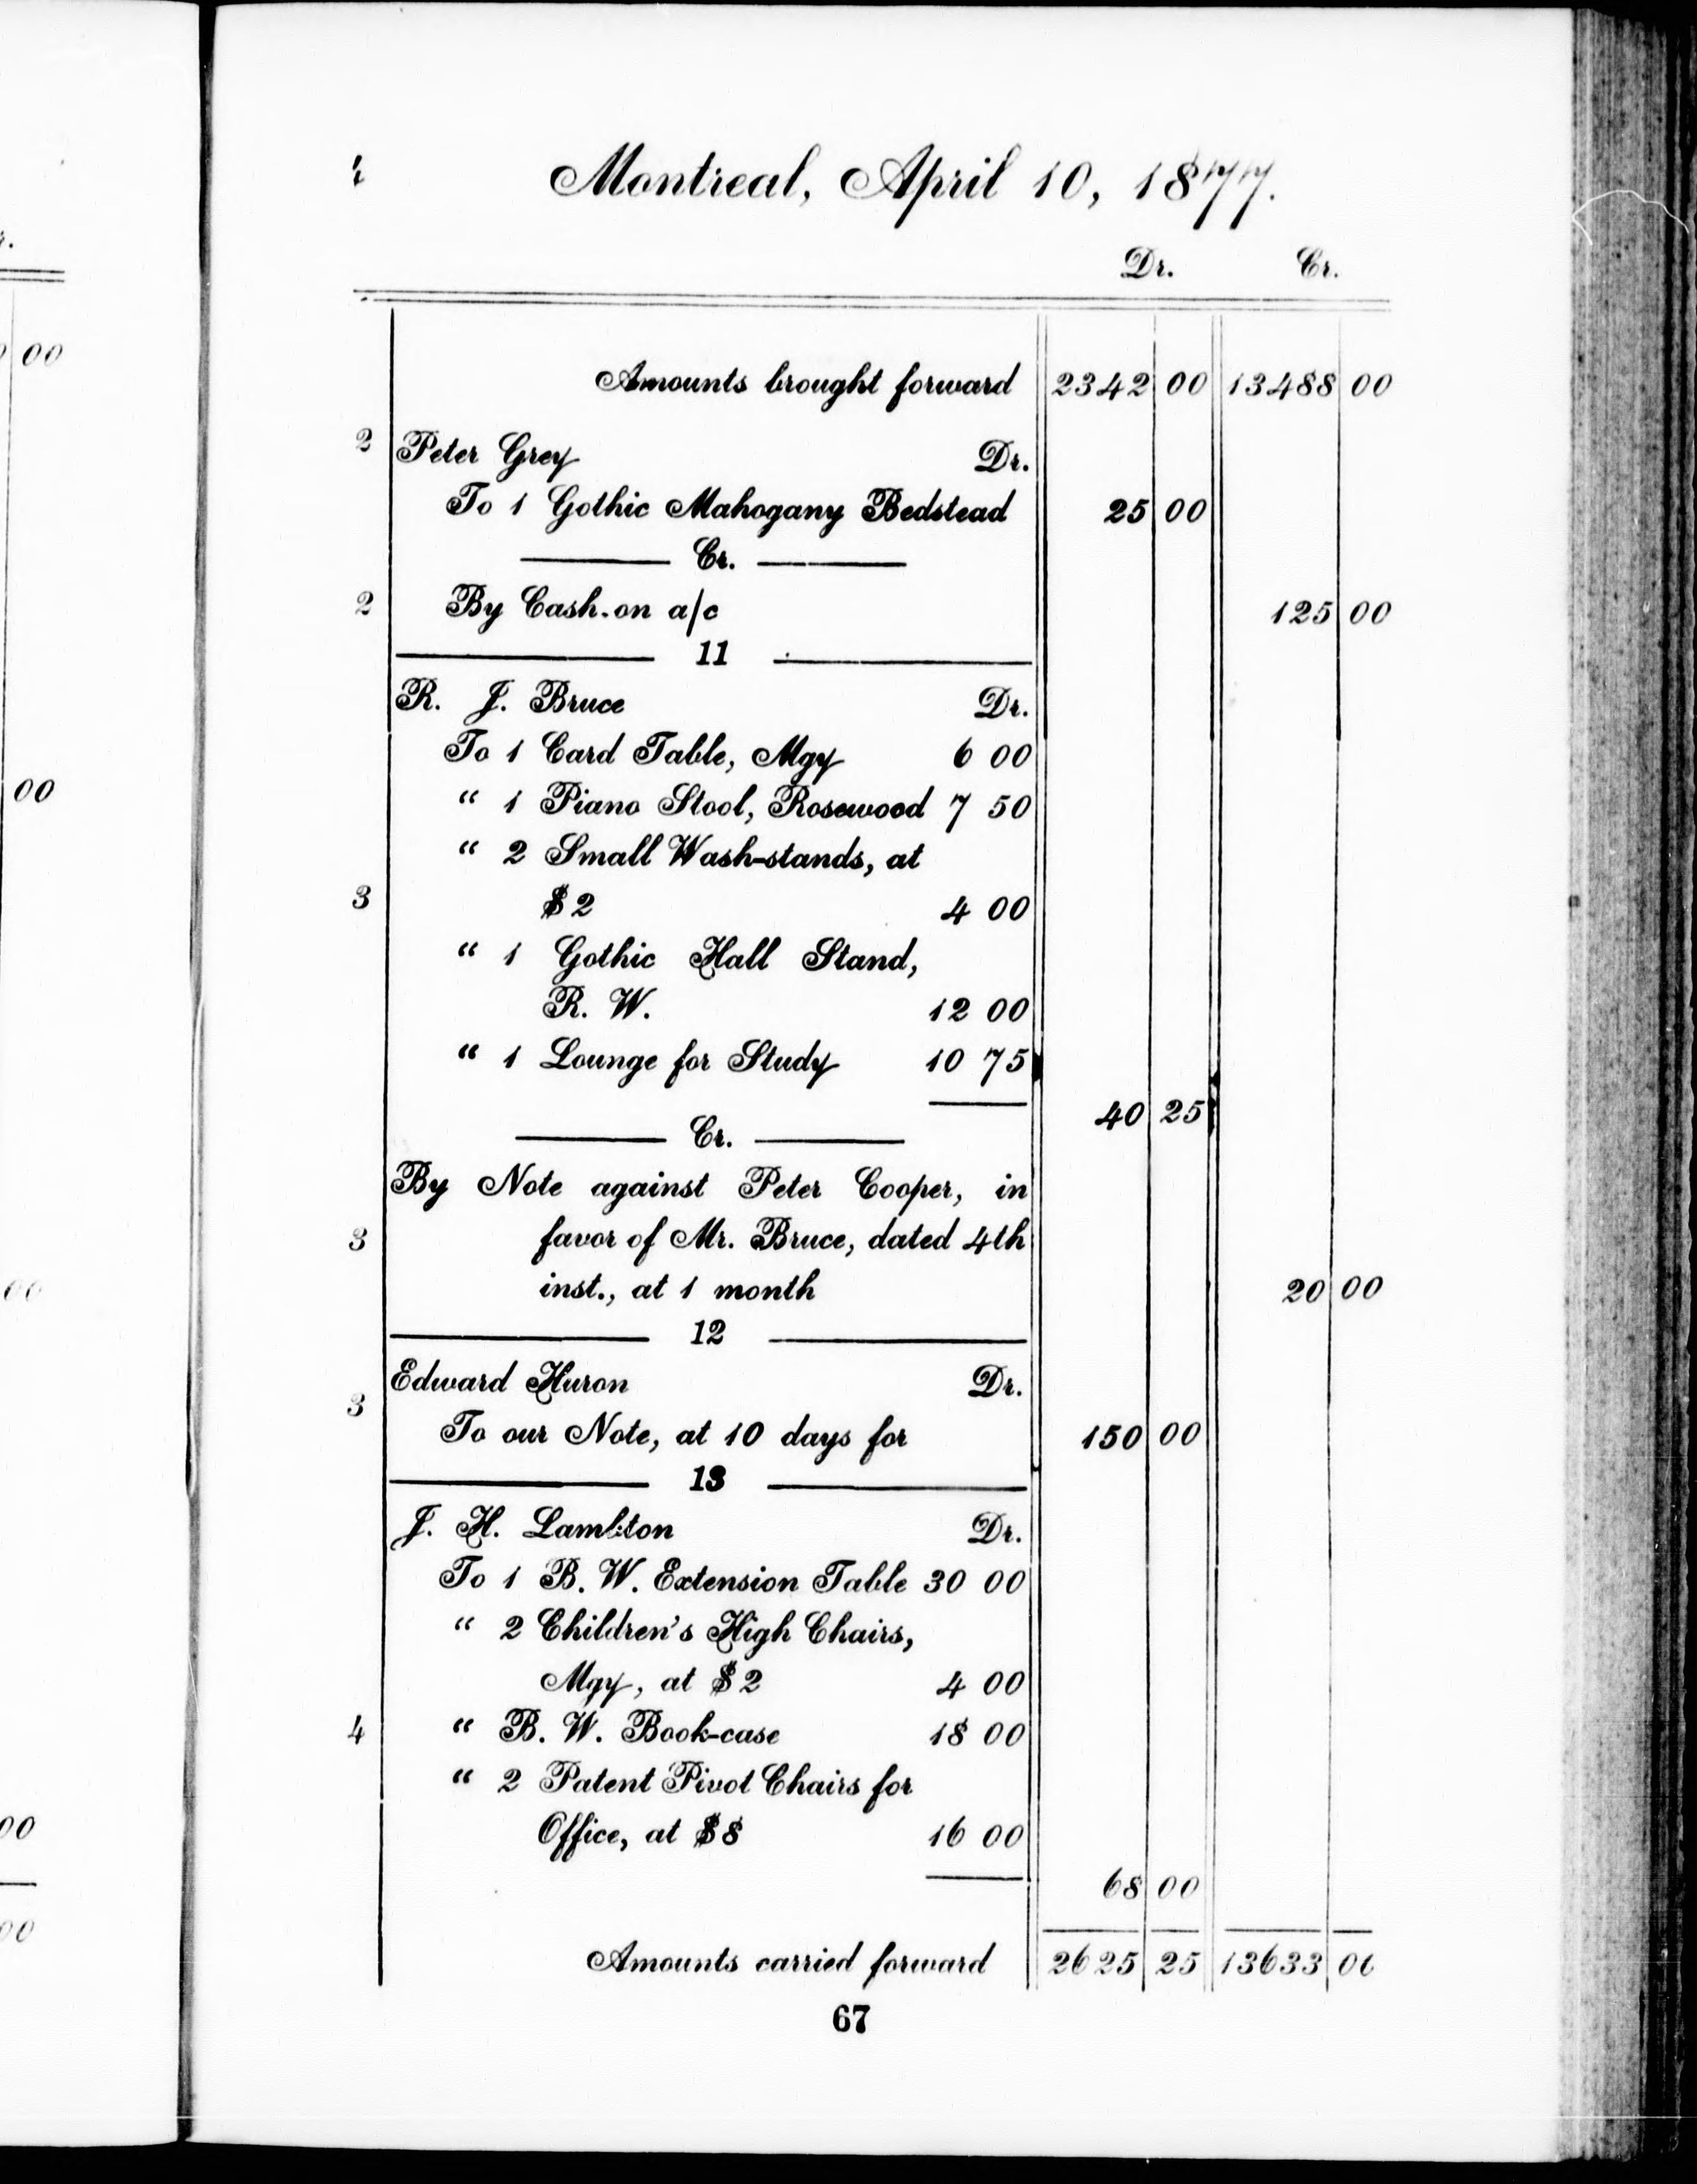 Montreal, April 10, 1877.
Dr. Cr.
Amounts brought forward 2342 00 13488 00
2 Peter Grey Dr.
To 1 Gothic Mahogany Bedstead 25 00
Cr.
2 By Cash on a/c 125 00
11
R. J. Bruce Dr.
To 1 Card Table, Mgy 6 00
" 1 Piano Stool, Rosewood 7 50
" 2 Small Wash-stands, at
3 $2 4 00
" 1 Gothic Hall Stand,
R. W. 12 00
" 1 Lounge for Study 10 75
40 25
Cr.
By Note against Peter Cooper, in
3 favor of Mr. Bruce, dated 4th
inst., at 1 month 20 00
12
Edward Huron Dr.
3
To our Note, at 10 days for 150 00
13
J. H. Lambton Dr.
To 1 B. W. Extension Table 30 00
" 2 Children's High Chairs,
Mgy, at $2 4 00
4 " B. W. Book-case 18 00
" 2 Patent Pivot Chairs for
Office, at $8 16 00
68 00
Amounts carried forward 2625 25 13633 00
67
00
00
00
00
00